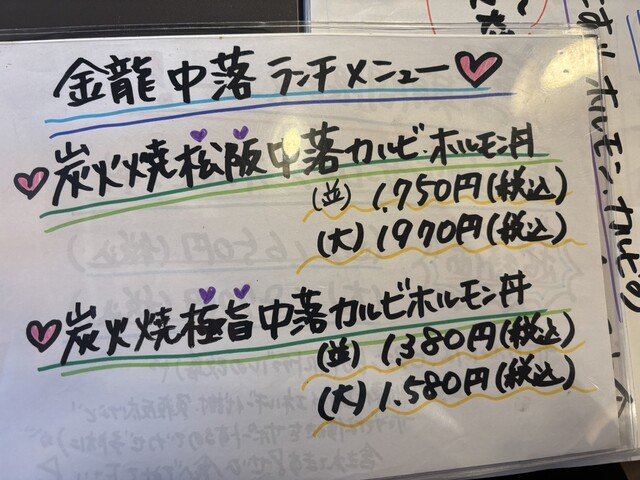 金龍中落ランチメニュー
炭火焼松阪中落カルビ・ホルモン丼
(並) 1,750円(税込)
(大) 1970円(税込)
炭火焼極旨中落カルビホルモン丼
(並) 1,380円(税込)
(大) 1.580円(税込)
ホルモン.カルビの